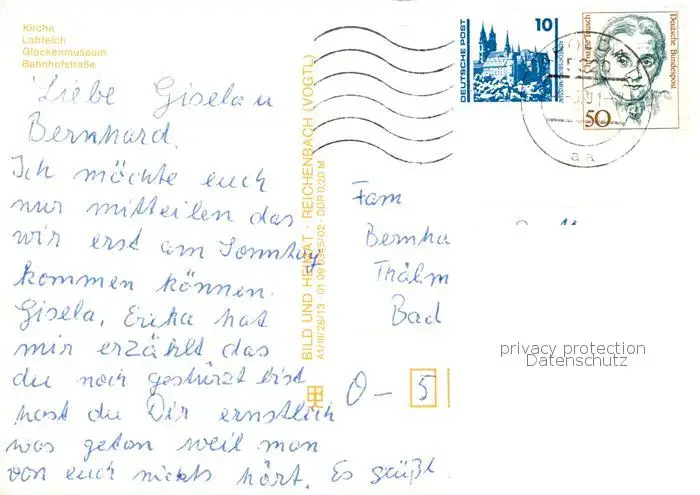 Kirche
Lohteich
Glockenmuseum
Bahnhofstraße
Liebe Gisela u
Bernhard.
Ich möchte euch
nur mitteilen das
wir erst am Sonntag
kommen können.
Gisela, Erika hat
mir erzählt das
du noch gestürzt bist
hast du Dir ernstlich
was getan weil man
von euch nichts hört. Es grüßt
BILD UND HEIMAT · REICHENBACH (VOGTL)
A1/III/26/13 01 09 0345/02 · DDR 0,20 M
DEUTSCHE POST
10
Deutsche Bundespost
50
aa
Fam
Bernha
Thälm
Bad
O - 5
privacy protection
Datenschutz